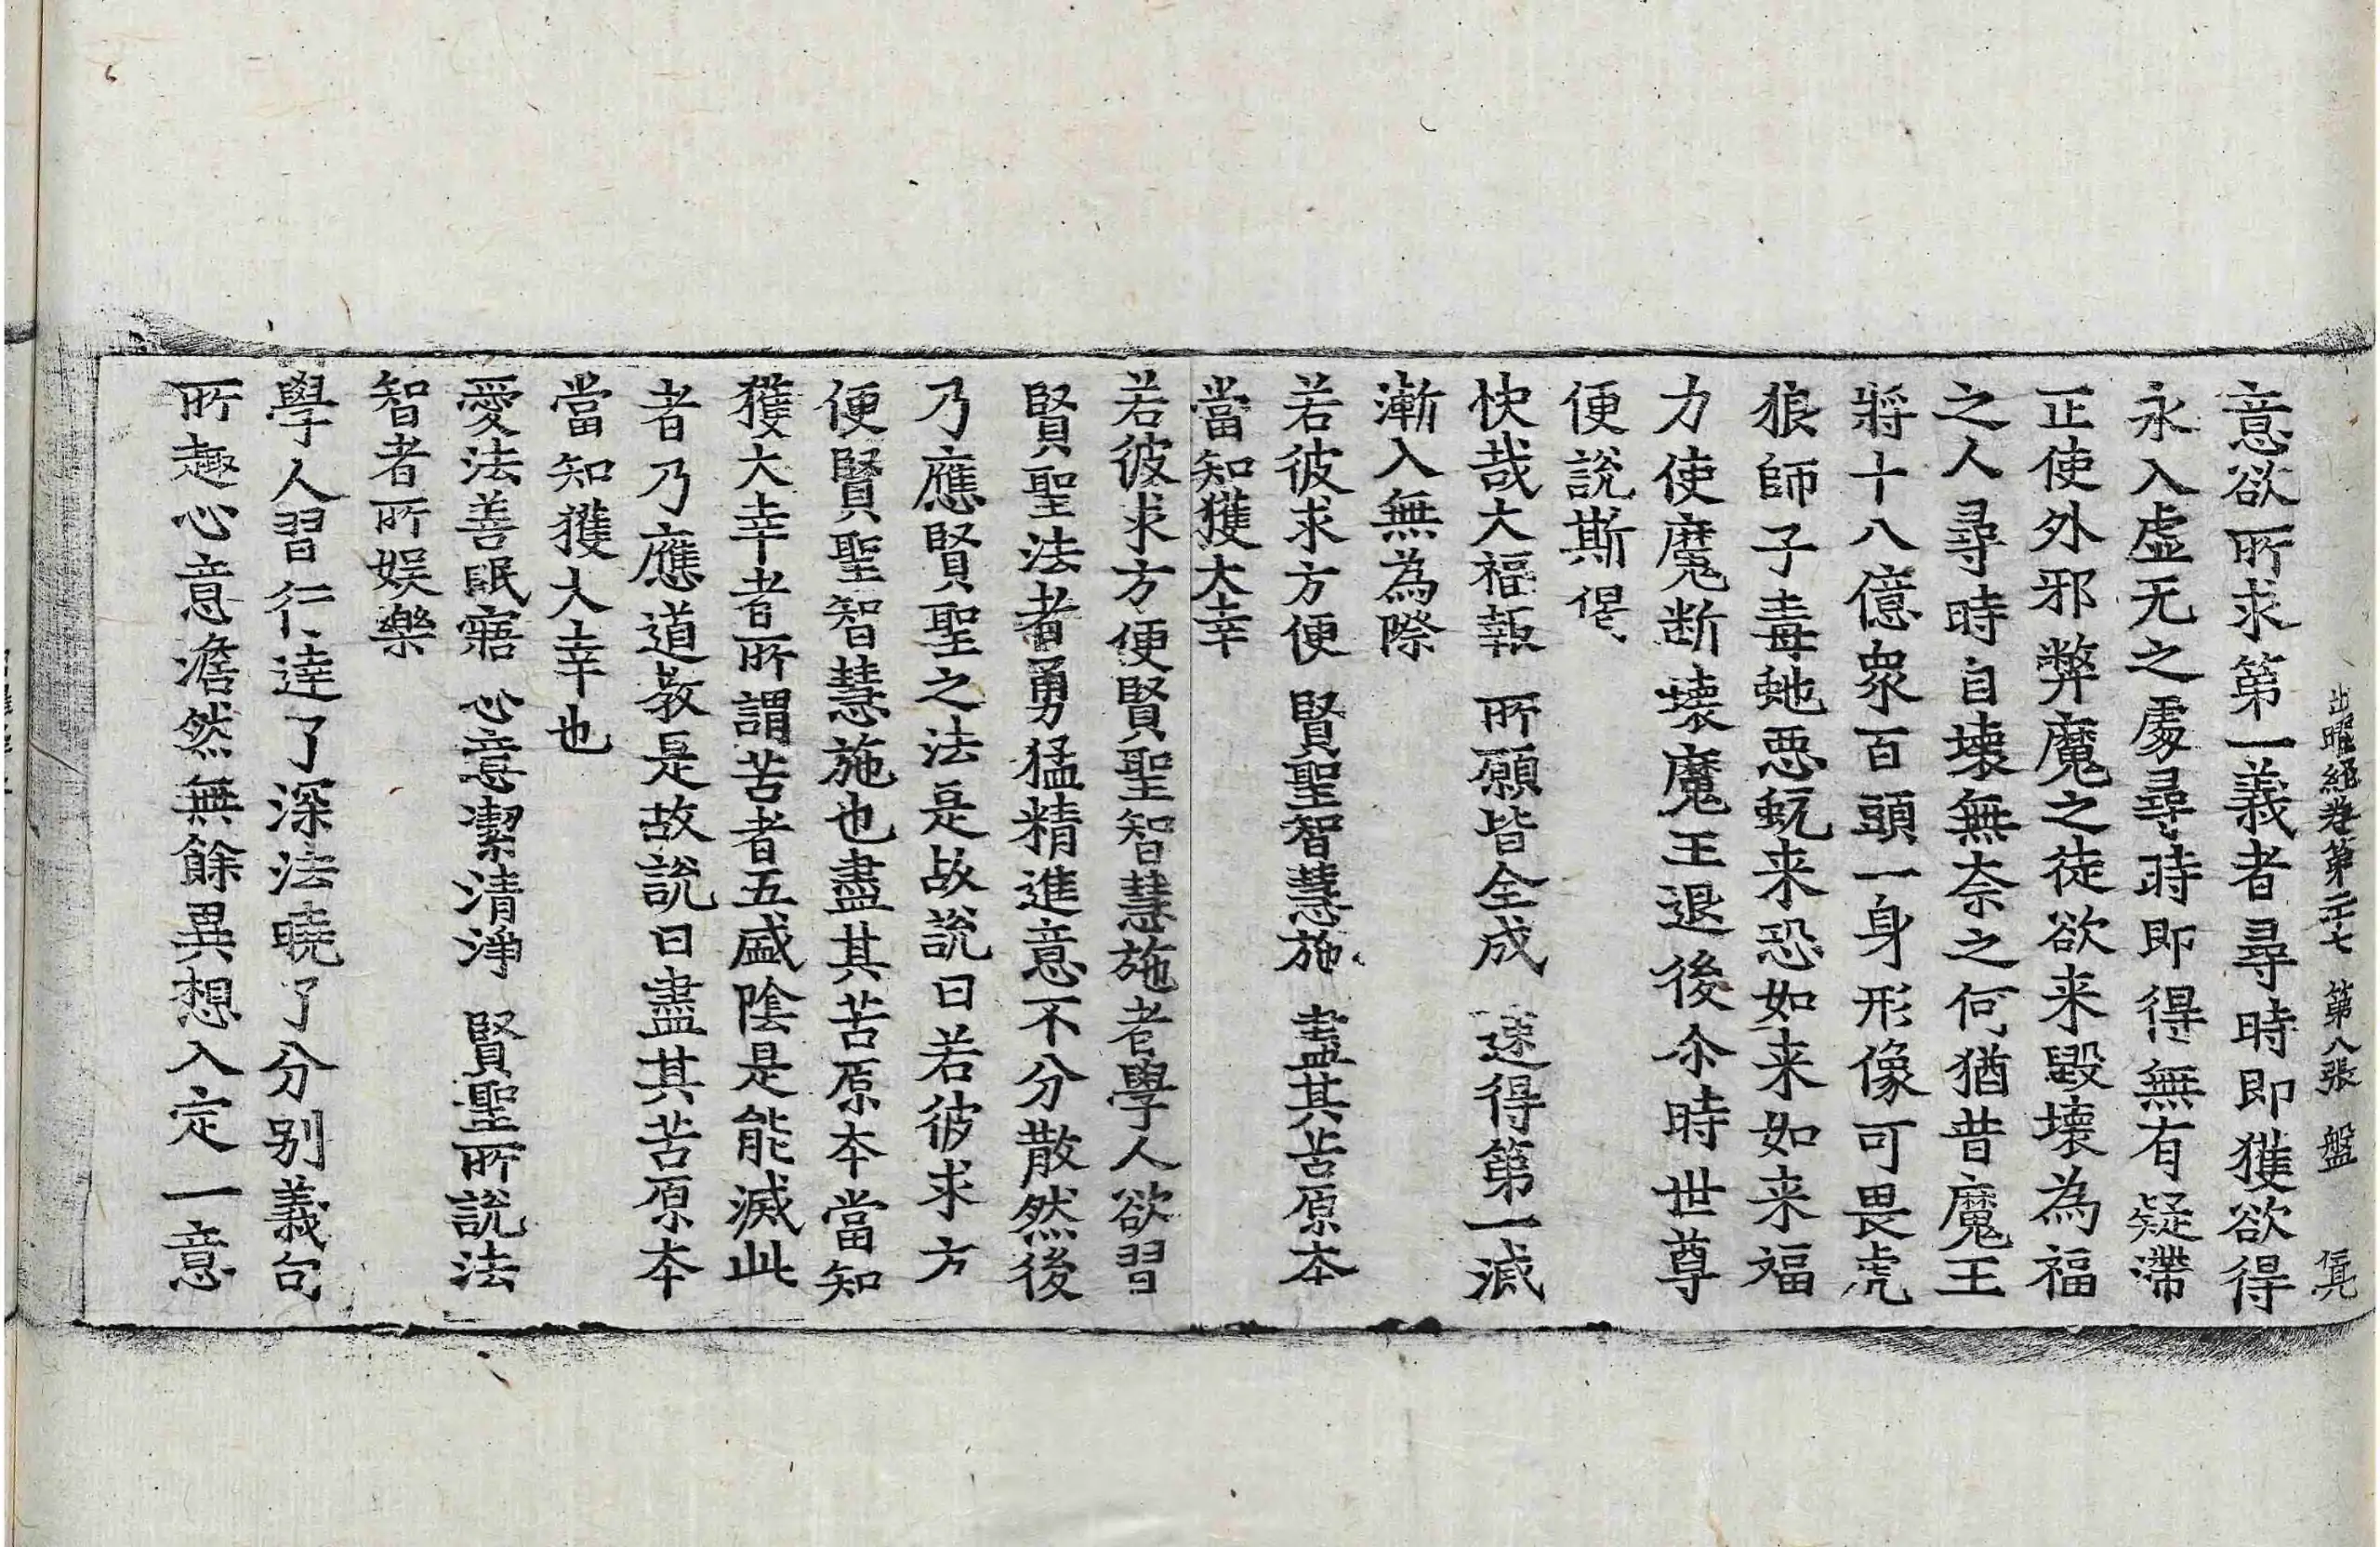 出曜經卷第二十七 第八張 盤 信元
意欲所求第一義者尋時即獲欲得
永入虛无之處尋時即得無有疑滯
正使外邪弊魔之徒欲来毀壞為福
之人尋時自壞無奈之何猶昔魔王
將十八億衆百頭一身形像可畏虎
狼師子毒虵惡蚖来恐如来如来福
力使魔断壞魔王退後尒時世尊
便說斯偈
快哉大福報 所願皆全成 速得第一滅
漸入無為際
若彼求方便 賢聖智慧施 盡其苦原本
當知獲大幸
若彼求方便賢聖智慧施者學人欲習
賢聖法者勇猛精進意不分散然後
乃應賢聖之法是故說曰若彼求方
便賢聖智慧施也盡其苦原本當知
獲大幸者所謂苦者五盛陰是能滅此
者乃應道教是故說曰盡其苦原本
當知獲大幸也
愛法善眠寤 心意潔清淨 賢聖所說法
智者所娛樂
學人習行達了深法曉了分別義句
所趣心意澹然無餘異想入定一意